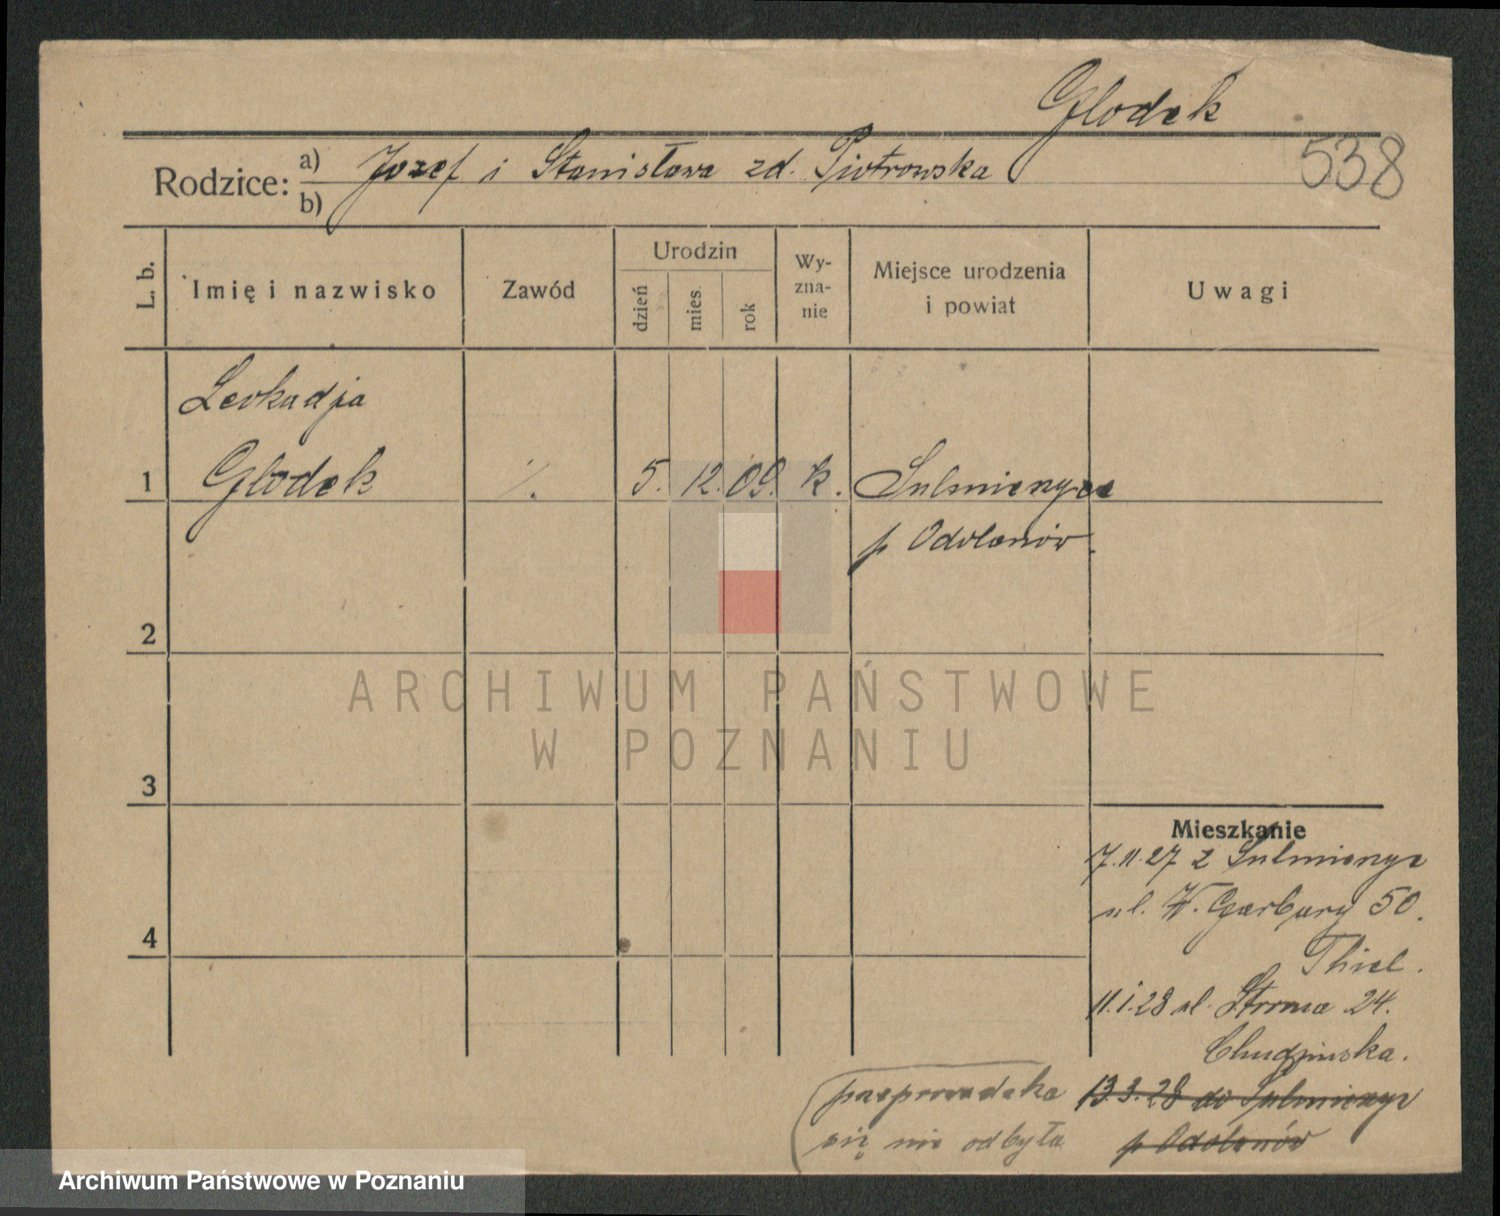 Glodek
538
Rodzice: a) Jozef i Stanisława zd. Piotrowska
b)
L. b.
Imię i nazwisko
Zawód
Urodzin
dzień
mies.
rok
Wy-
zna-
nie
Miejsce urodzenia
i powiat
Uwagi
Leokadja
1 Glodek ./. 5. 12. 09. k. Sulmierzyce
p Odolanów.
2
ARCHIWUM PAŃSTWOWE
W POZNANIU
3
Mieszkanie
7.11.27 z Sulmierzyc
ul. W. Garbary 50.
4
Thiel.
11.1.28 ul. Stroma 24.
Chudzinska.
przeprowadzka 13.3.28 do Sulmierzyc
się nie odbyła p Odolanów
Archiwum Państwowe w Poznaniu